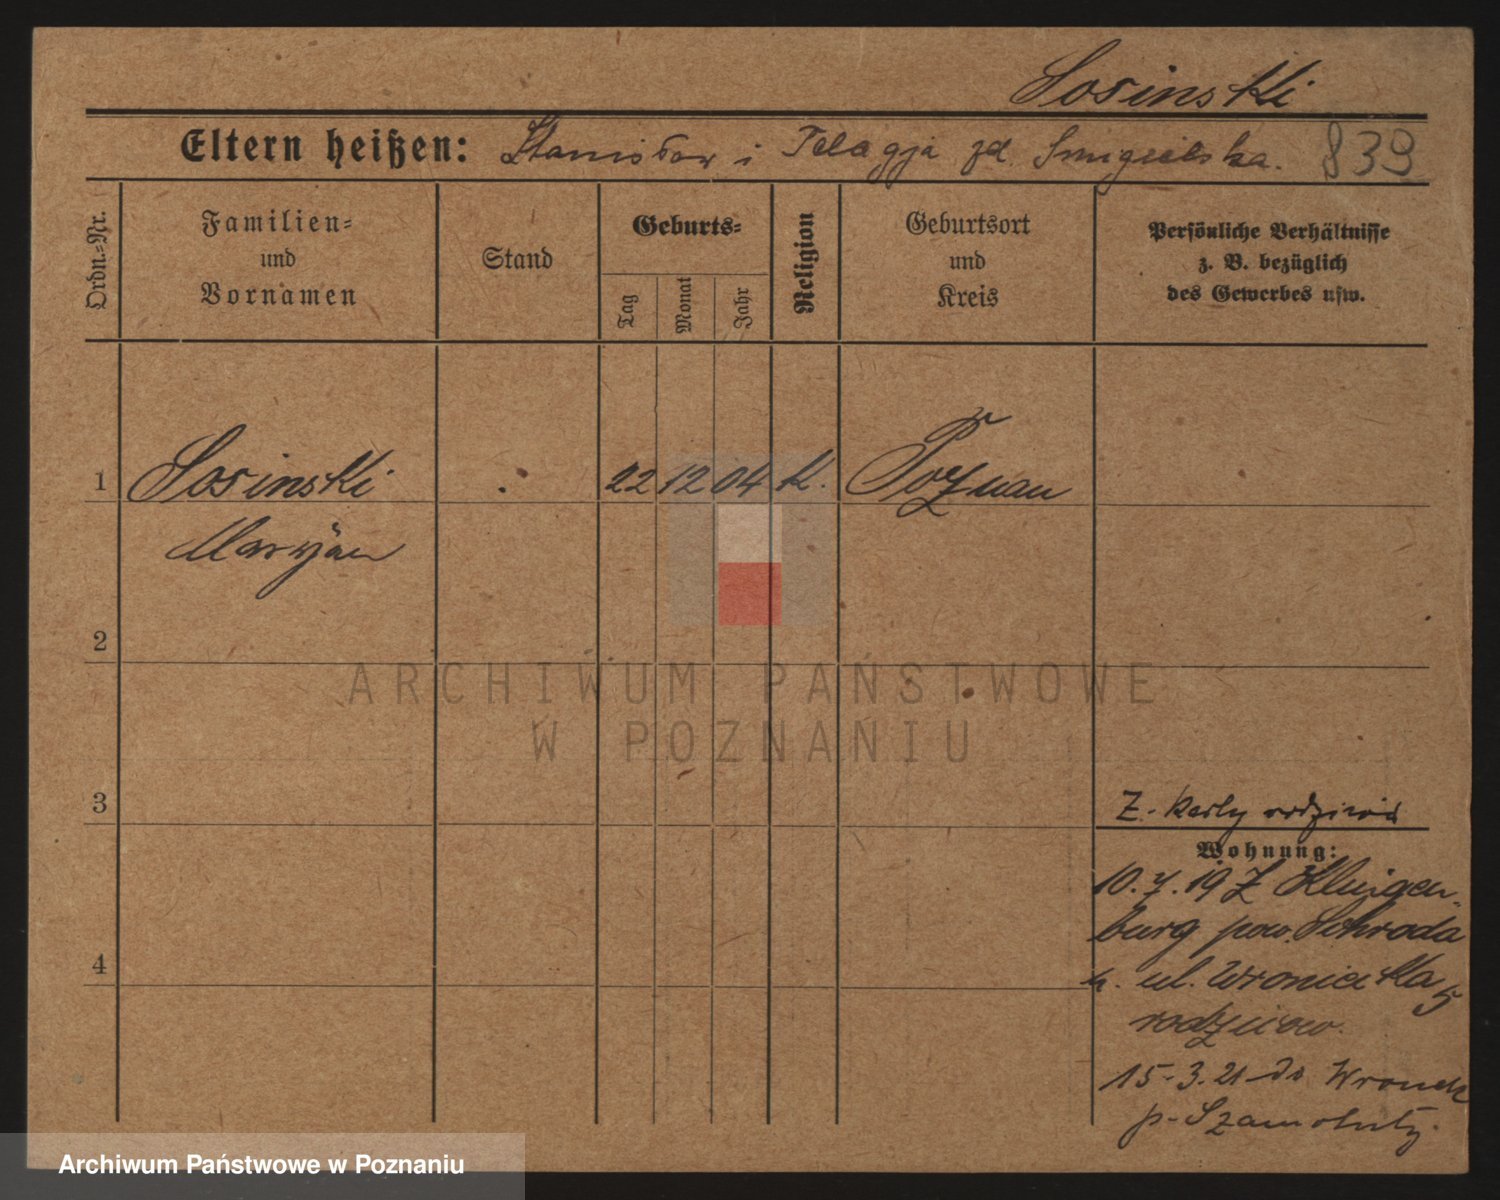 Sosinski
Eltern heißen: Stanisław i Pelagja zd. Smigielska.
839
Ordn.-Nr.
Familien-
und
Vornamen
Stand
Geburts-
Tag
Monat
Jahr
Religion
Geburtsort
und
Kreis
Persönliche Verhältnisse
z. B. bezüglich
des Gewerbes usw.
1 Sosinski . 22 12 04 k. Poznan
Maryan
2
ARCHIWUM PAŃSTWOWE
W POZNANIU
3
Z. karty rodziców
Wohnung:
10.7.19 z Klingen-
burg pow. Schroda
4
n. ul. Wroniecka 5
rodzicow.
15.3.21 do Wronek
p. Szamotuły.
Archiwum Państwowe w Poznaniu